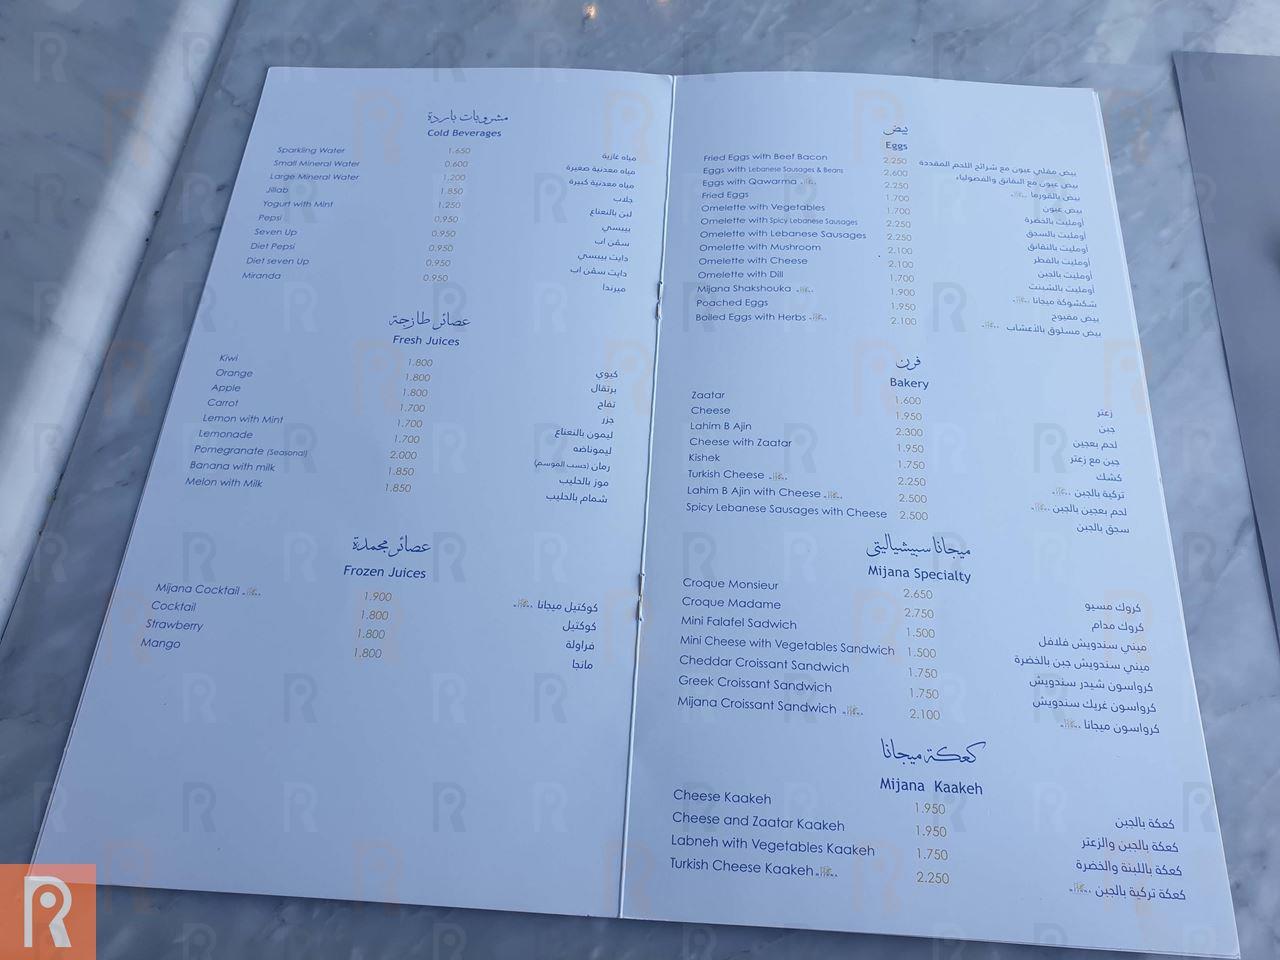 مشروبات باردة
Cold Beverages
Sparkling Water 1.650 مياه غازية
Small Mineral Water 0.600 مياه معدنية صغيرة
Large Mineral Water 1.200 مياه معدنية كبيرة
Jillab 1.850 جلاب
Yogurt with Mint 1.250 لبن بالنعناع
Pepsi 0.950 بيبسي
Seven Up 0.950 سفن اب
Diet Pepsi 0.950 دايت بيبسي
Diet seven Up 0.950 دايت سفن اب
Miranda 0.950 ميرندا
عصائر طازجة
Fresh Juices
Kiwi 1.800 كيوي
Orange 1.800 برتقال
Apple 1.800 تفاح
Carrot 1.700 جزر
Lemon with Mint 1.700 ليمون بالنعناع
Lemonade 1.700 ليموناضه
Pomegranate (Seasonal) 2.000 رمان (حسب الموسم)
Banana with milk 1.850 موز بالحليب
Melon with Milk 1.850 شمام بالحليب
عصائر مجمدة
Frozen Juices
Mijana Cocktail 1.900 كوكتيل ميجانا
Cocktail 1.800 كوكتيل
Strawberry 1.800 فراولة
Mango 1.800 مانجا
بيض
Eggs
Fried Eggs with Beef Bacon 2.250 بيض مقلي عيون مع شرائح اللحم المقددة
Eggs with Lebanese Sausages & Beans 2.600 بيض عيون مع النقانق والفصولياء
Eggs with Qawarma 2.250 بيض بالقورما
Fried Eggs 1.700 بيض عيون
Omelette with Vegetables 1.700 أومليت بالخضرة
Omelette with Spicy Lebanese Sausages 2.250 أومليت بالسجق
Omelette with Lebanese Sausages 2.250 أومليت بالنقانق
Omelette with Mushroom 2.100 أومليت بالفطر
Omelette with Cheese 2.100 أومليت بالجبن
Omelette with Dill 1.700 أومليت بالشبنت
Mijana Shakshouka 1.900 شكشوكة ميجانا
Poached Eggs 1.950 بيض مفيوح
Boiled Eggs with Herbs 2.100 بيض مسلوق بالأعشاب
فرن
Bakery
Zaatar 1.600 زعتر
Cheese 1.950 جبن
Lahim B Ajin 2.300 لحم بعجين
Cheese with Zaatar 1.950 جبن مع زعتر
Kishek 1.750 كشك
Turkish Cheese 2.250 تركية بالجبن
Lahim B Ajin with Cheese 2.500 لحم بعجين بالجبن
Spicy Lebanese Sausages with Cheese 2.500 سجق بالجبن
ميجانا سبيشياليتي
Mijana Specialty
Croque Monsieur 2.650 كروك مسيو
Croque Madame 2.750 كروك مدام
Mini Falafel Sadwich 1.500 ميني سندويش فلافل
Mini Cheese with Vegetables Sandwich 1.500 ميني سندويش جبن بالخضرة
Cheddar Croissant Sandwich 1.750 كرواسون شيدر سندويش
Greek Croissant Sandwich 1.750 كرواسون غريك سندويش
Mijana Croissant Sandwich 2.100 كرواسون ميجانا
كعكة ميجانا
Mijana Kaakeh
Cheese Kaakeh 1.950 كعكة بالجبن
Cheese and Zaatar Kaakeh 1.950 كعكة بالجبن والزعتر
Labneh with Vegetables Kaakeh 1.750 كعكة باللبنة والخضرة
Turkish Cheese Kaakeh 2.250 كعكة تركية بالجبن